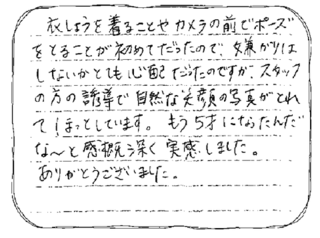 衣しょうを着ることやカメラの前でポーズ
をとることが初めてだったので、嫌がりは
しないかとても心配だったのですが、スタッフ
の方の誘導で自然な笑顔の写真がとれ
てほっとしています。もう5才になったんだ
な〜と感概深く実感しました。
ありがとうございました。